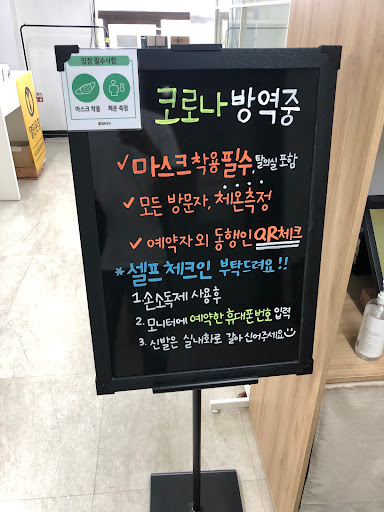 입장 필수사항
마스크 착용
체온 측정
코로나 방역중
✓ 마스크 착용 필수, 탈의실 포함
✓ 모든 방문자, 체온측정
✓ 예약자 외 동행인 QR체크
* 셀프 체크인 부탁드려요!!
1. 손소독제 사용 후
2. 모니터에 예약한 휴대폰 번호 입력
3. 신발은 실내화로 갈아 신어주세요